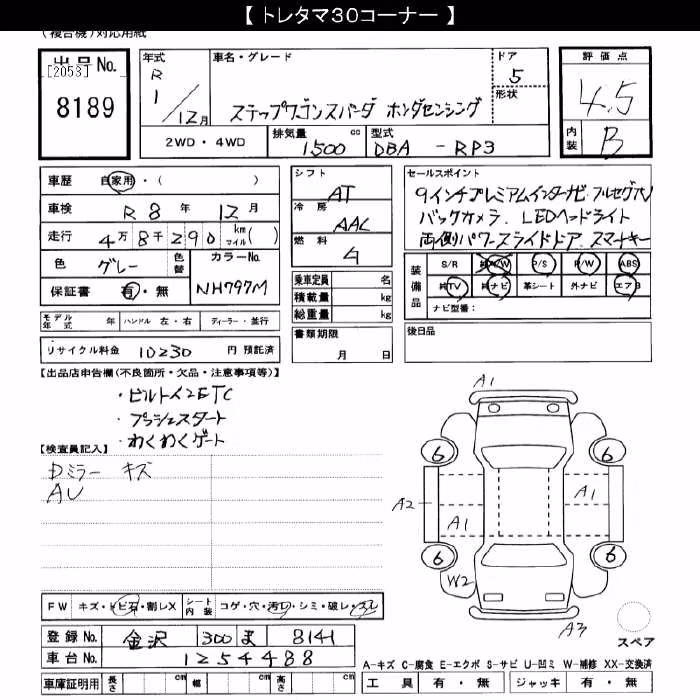 【 トレタマ30コーナー 】
(複合機)対応用紙
出品No.
[2053]
8189
年式 R 1/12月
車名・グレード
ステップワゴンスパーダ ホンダセンシング
ドア 5
形状
評価点
4.5
内装 B
2WD・4WD
排気量 1500 cc
型式 DBA - RP3
車歴 自家用・( )
車検 R 8 年 12 月
走行 4万8千290 km マイル( )
色 グレー 色替
カラーNo. NH797M
保証書 有・無
モデル年式 年 ハンドル 左・右 ディーラー・並行
リサイクル料金 10230 円 預託済
シフト AT
冷房 AAC
燃料 ム
乗車定員 名
積載量 kg
総重量 kg
書類期限
月 日
セールスポイント
9インチプレミアムインターナビ フルセグTV
バックカメラ. LEDヘッドライト
両側パワースライドドア スマートキー
装備品
S/R 純A/W P/S P/W ABS
純TV 純ナビ 革シート 外ナビ エアB
ナビ型番:
後日品
【出品店申告欄(不良箇所・欠品・注意事項等)】
・ビルトインETC
・プッシュスタート
・わくわくゲート
【検査員記入】
Dミラー キズ
AU
A1
6
6
A2
A1
A1
6
6
W2
A3
スペア
FW キズ・トビ石・割レX
シート内装 コゲ・穴・汚レ・シミ・破レ・スレ
登録No. 金沢 300 ま 8141
車台No. 1254488
車庫証明用 長さ cm 幅 cm 高さ cm
A-キズ C-腐食 E-エクボ S-サビ U-凹ミ W-補修 XX-交換済
工具 有・無 ジャッキ 有・無